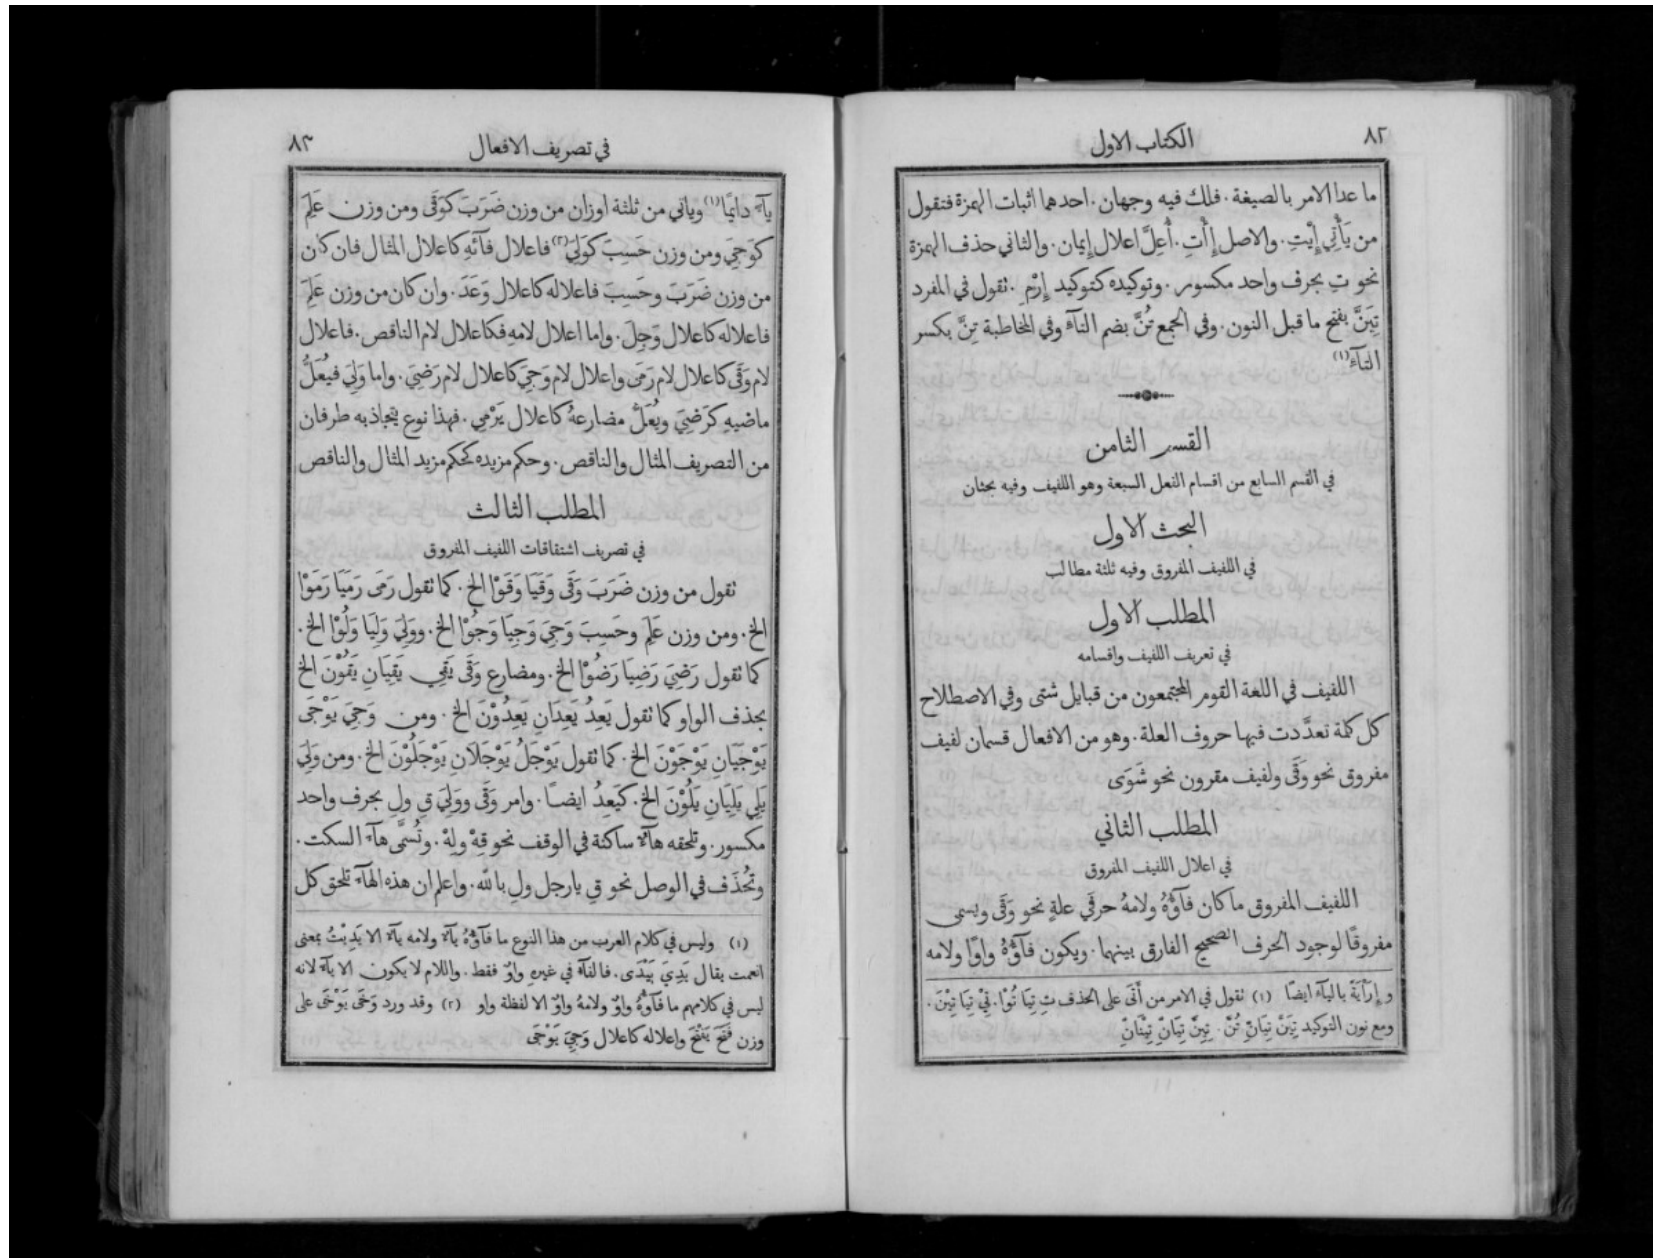 ٨٢
الكتاب الاول
ما عدا الامر بالصيغة. فلك فيه وجهان. احدهما اثبات الهمزة فتقول
من يَأْتِي إِيْتِ. والاصل إِأْتِ. أُعِلَّ اعلال إِيمان. والثاني حذف الهمزة
نحو تِ بحرف واحد مكسور. وتوكيده كتوكيد إِرْمِ. تقول في المفرد
تِيَنَّ بفتح ما قبل النون. وفي الجمع تُنَّ بضم التآءِ وفي المخاطبة تِنَّ بكسر
التآءِ (١)
القسم الثامن
في القسم السابع من اقسام الفعل السبعة وهو اللفيف وفيه بحثان
البحث الاول
في اللفيف المفروق وفيه ثلثة مطالب
المطلب الاول
في تعريف اللفيف واقسامه
اللفيف في اللغة القوم المجتمعون من قبايل شتى وفي الاصطلاح
كل كلمة تعدَّدت فيها حروف العلة. وهو من الافعال قسمان لفيف
مفروق نحو وَقَى ولفيف مقرون نحو شَوَى
المطلب الثاني
في اعلال اللفيف المفروق
اللفيف المفروق ما كان فآؤُهُ ولامهُ حرفَي علةٍ نحو وَقَى ويسمى
مفروقًا لوجود الحرف الصحيح الفارق بينهما. ويكون فآؤُهُ واوًا ولامه
و إِرْآيَةً باليآءِ ايضًا (١) تقول في الامر من أَتَى على الحذف تِ تِيَا تُوْا. تِيْ تِيَا تِيْنَ.
ومع نون التوكيد تِيَنَّ تِيَانِّ تُنَّ. تِنَّ تِيَانِّ تِيْنَانِّ
في تصريف الافعال
٨٣
يآءٌ دايمًا (١) وياتي من ثلثة اوزان من وزن ضَرَبَ كَوَقَى ومن وزن عَلِمَ
كَوَجِيَ ومن وزن حَسِبَ كَوَلِيَ (٢) فاعلال فآئِهِ كاعلال المثال فان كان
من وزن ضَرَبَ وحَسِبَ فاعلاله كاعلال وَعَدَ. وان كان من وزن عَلِمَ
فاعلاله كاعلال وَجِلَ. واما اعلال لامهِ فكاعلال لام الناقص. فاعلال
لام وَقَى كاعلال لام رَمَى واعلال لام وَجِيَ كاعلال لام رَضِيَ. واما وَلِيَ فيُعَلُّ
ماضيهِ كرَضِيَ ويُعَلُّ مضارعهُ كاعلال يَرْمِي. فهذا نوع يتجاذبه طرفان
من التصريف المثال والناقص. وحكم مزيده كحكم مزيد المثال والناقص
المطلب الثالث
في تصريف اشتقاقات اللفيف المفروق
تقول من وزن ضَرَبَ وَقَى وَقَيَا وَقَوْا الخ. كما تقول رَمَى رَمَيَا رَمَوْا
الخ. ومن وزن عَلِمَ وحَسِبَ وَجِيَ وَجِيَا وَجُوْا الخ. ووَلِيَ وَلِيَا وَلُوْا الخ.
كما تقول رَضِيَ رَضِيَا رَضُوْا الخ. ومضارع وَقَى يَقِي يَقِيَانِ يَقُوْنَ الخ
بحذف الواو كما تقول يَعِدُ يَعِدَانِ يَعِدُوْنَ الخ. ومن وَجِيَ يَوْجَى
يَوْجَيَانِ يَوْجَوْنَ الخ. كما تقول يَوْجَلُ يَوْجَلَانِ يَوْجَلُوْنَ الخ. ومن وَلِيَ
يَلِي يَلِيَانِ يَلُوْنَ الخ. كيَعِدُ ايضًا. وامر وَقَى ووَلِيَ قِ ولِ بحرف واحد
مكسور. وتلحقه هآءٌ ساكنة في الوقف نحو قِهْ ولِهْ. وتُسمَّى هآءَ السكت.
وتُحذَف في الوصل نحو قِ يا رجل ولِ بالله. واعلم ان هذه الهآءَ تلحق كل
(١) وليس في كلام العرب من هذا النوع ما فآؤُهُ يآءٌ ولامه يآءٌ الا يَدِيْتُ بمعنى
انعمت يقال يَدِيَ يَيْدَى. فالفآءُ في غيرهِ واوٌ فقط. واللام لا يكون الا يآءً لانه
ليس في كلامهم ما فآؤُهُ واوٌ ولامهُ واوٌ الا لفظة واو (٢) وقد ورد وَحَى يَوْحَى على
وزن فَتَحَ يَفْتَحُ واعلاله كاعلال وَجِيَ يَوْجَى